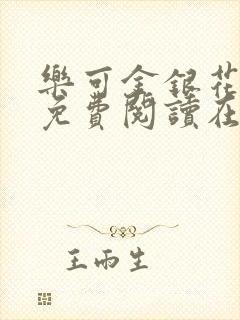 樂可金銀花
免費閱讀在
王雨生